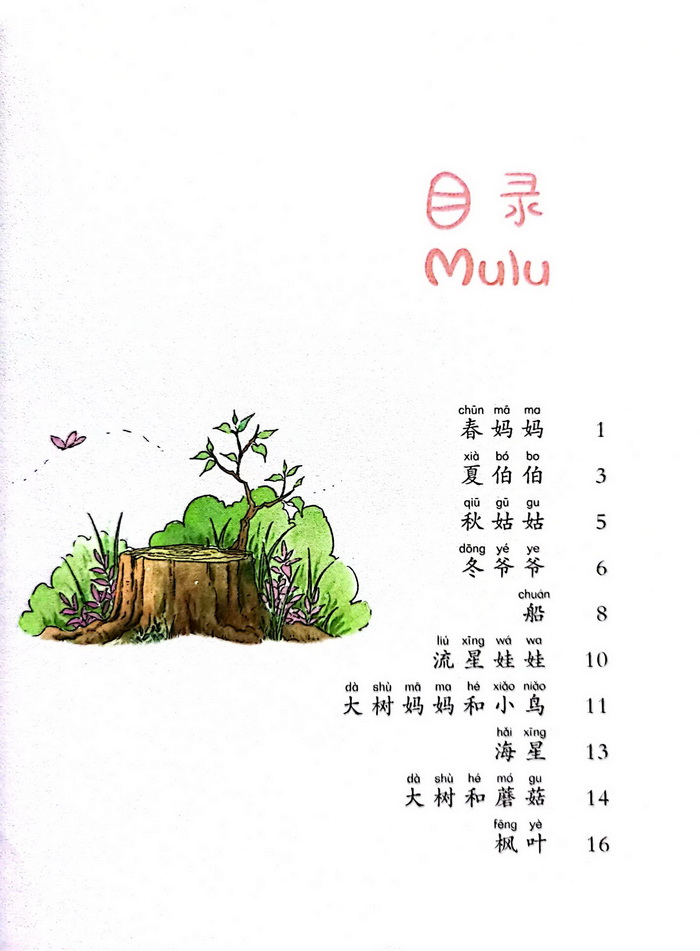 目录
Mulu
chūn mā ma
春妈妈 1
xià bó bo
夏伯伯 3
qiū gū gu
秋姑姑 5
dōng yé ye
冬爷爷 6
chuán
船 8
liú xīng wá wa
流星娃娃 10
dà shù mā ma hé xiǎo niǎo
大树妈妈和小鸟 11
hǎi xīng
海星 13
dà shù hé mó gu
大树和蘑菇 14
fēng yè
枫叶 16